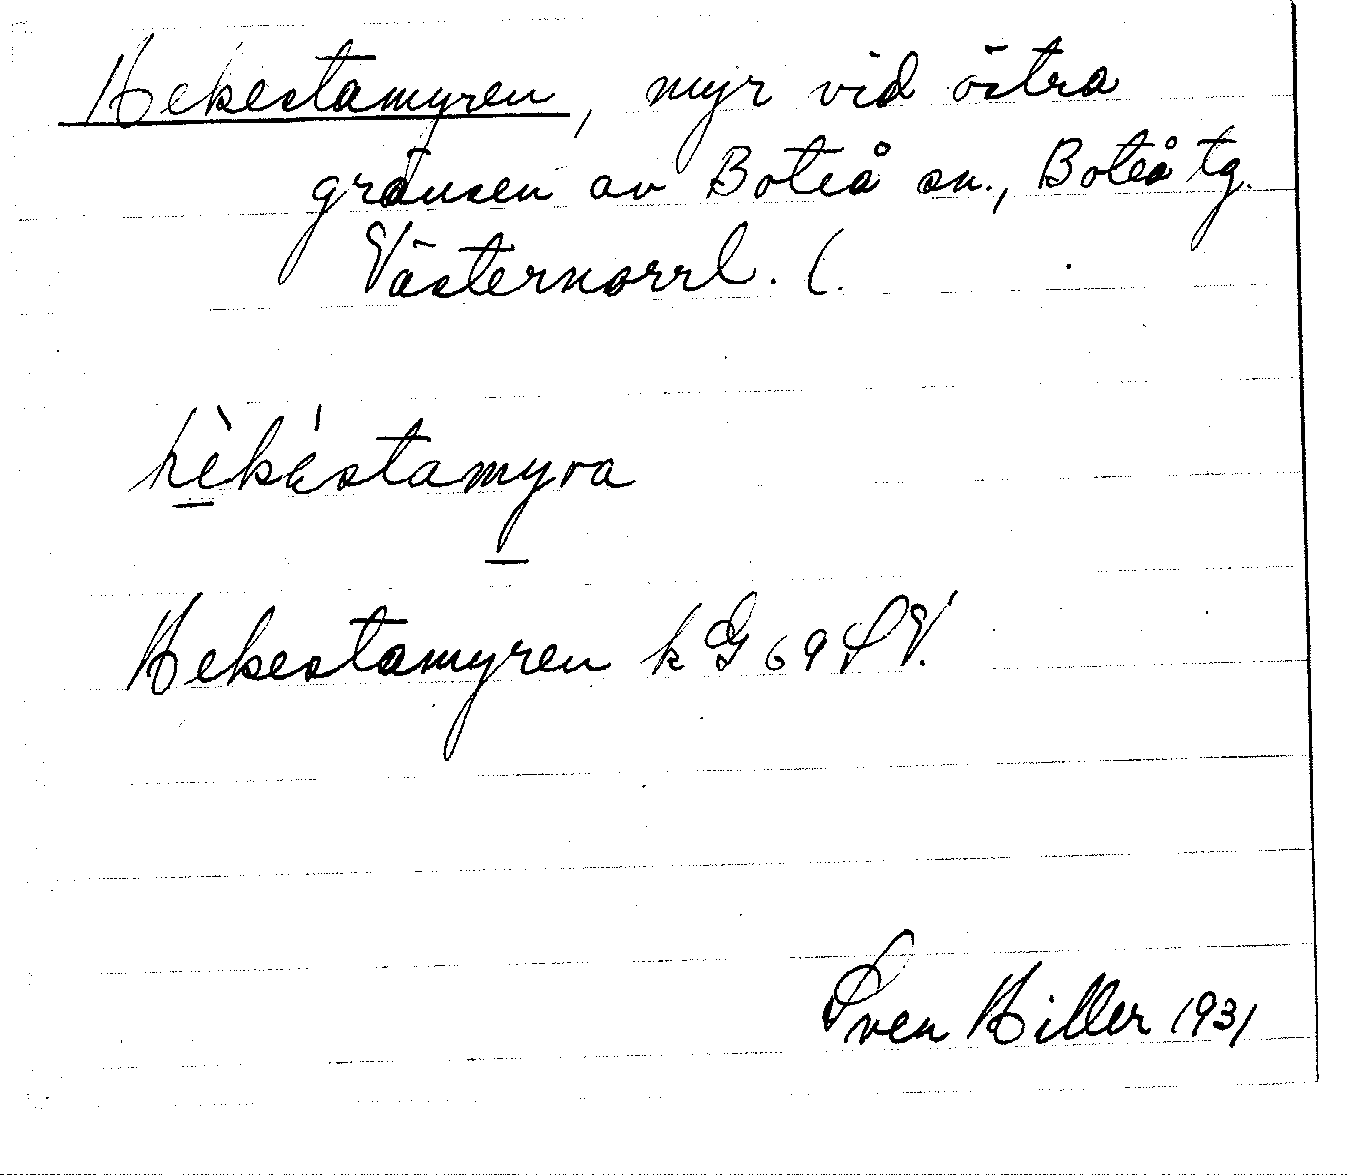 Hekestamyren, myr vid östra
gränsen av Boteå sn., Boteå tg.
Västernorrl. l.
hèkéstamyra
Hekestamyren k G 69 SV.
Sven Hiller 1931